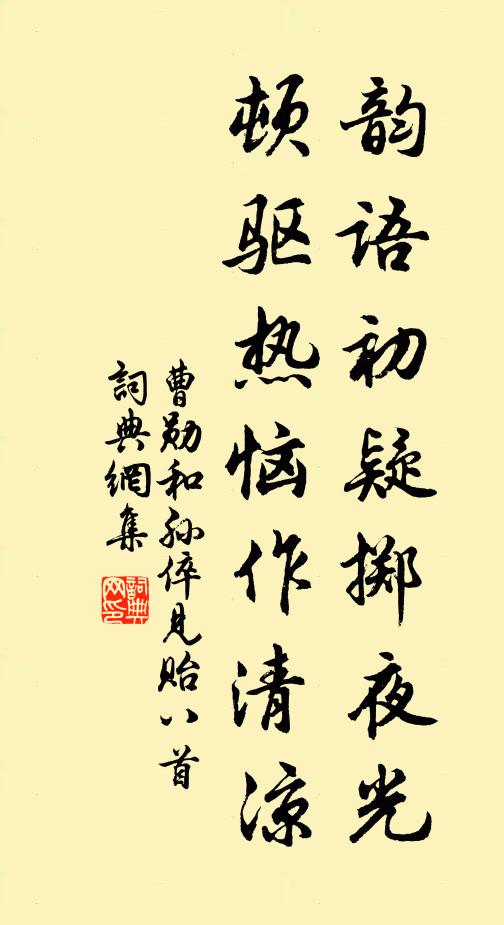 韵语初疑掷夜光
顿驱热恼作清凉
曹勋和孙倅见贻八首
詞典網集
詞典网印